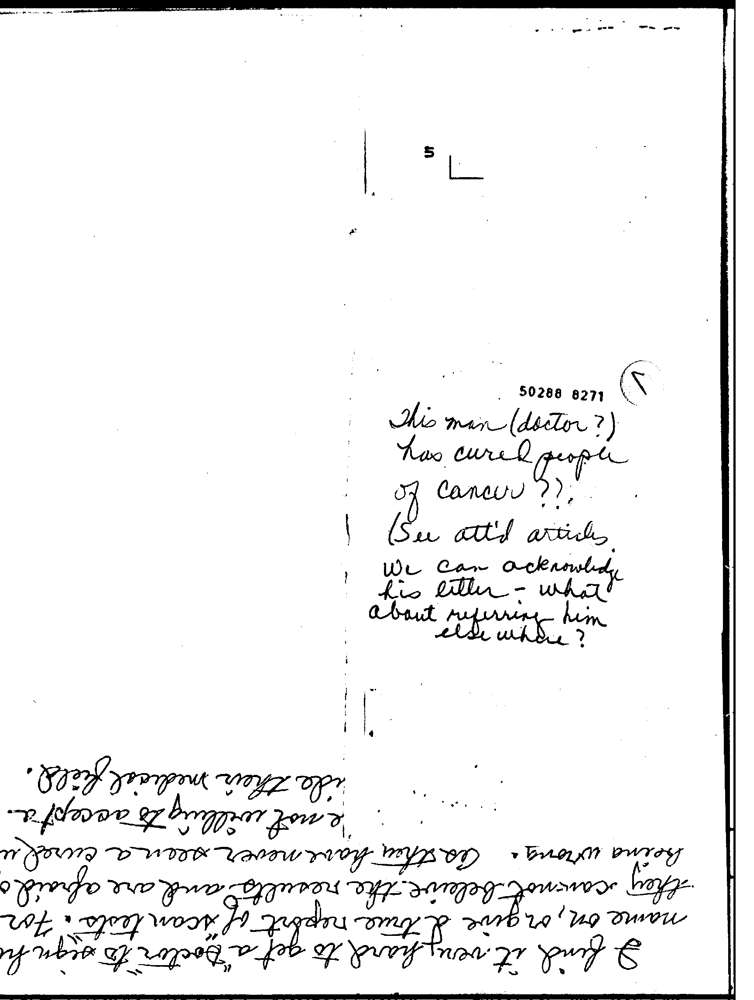 5
50288 8271
This man (doctor?)
has cured people
of cancer ??,
(See att'd articles
We can acknowledge
his letter - what
about referring him
elsewhere?
I find it very hard to get a "Doctor" to sign
name on, or give a true report of scan tests. For
they cannot beleive the results and are afraid
being wrong. As they have never seen a cured
not willing to accept a
their medical field.